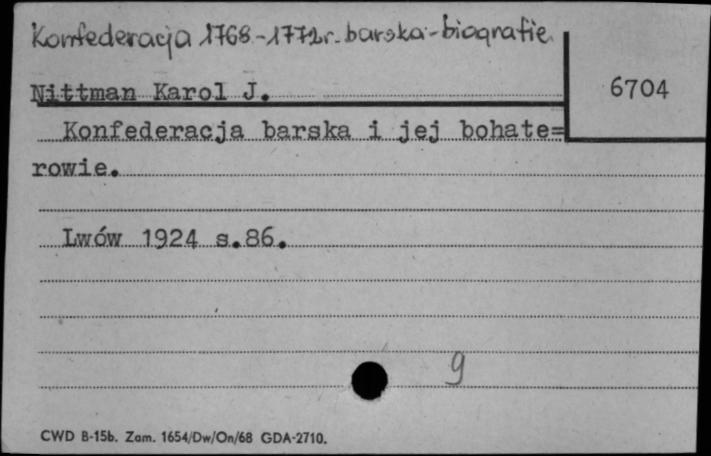 Konfederacja 1768-1772r. barska-biografie
6704
Nittman Karol J.
Konfederacja barska i jej bohate=
rowie.
Lwów 1924 s.86.
9
CWD B-15b. Zam. 1654/Dw/On/68 GDA-2710.